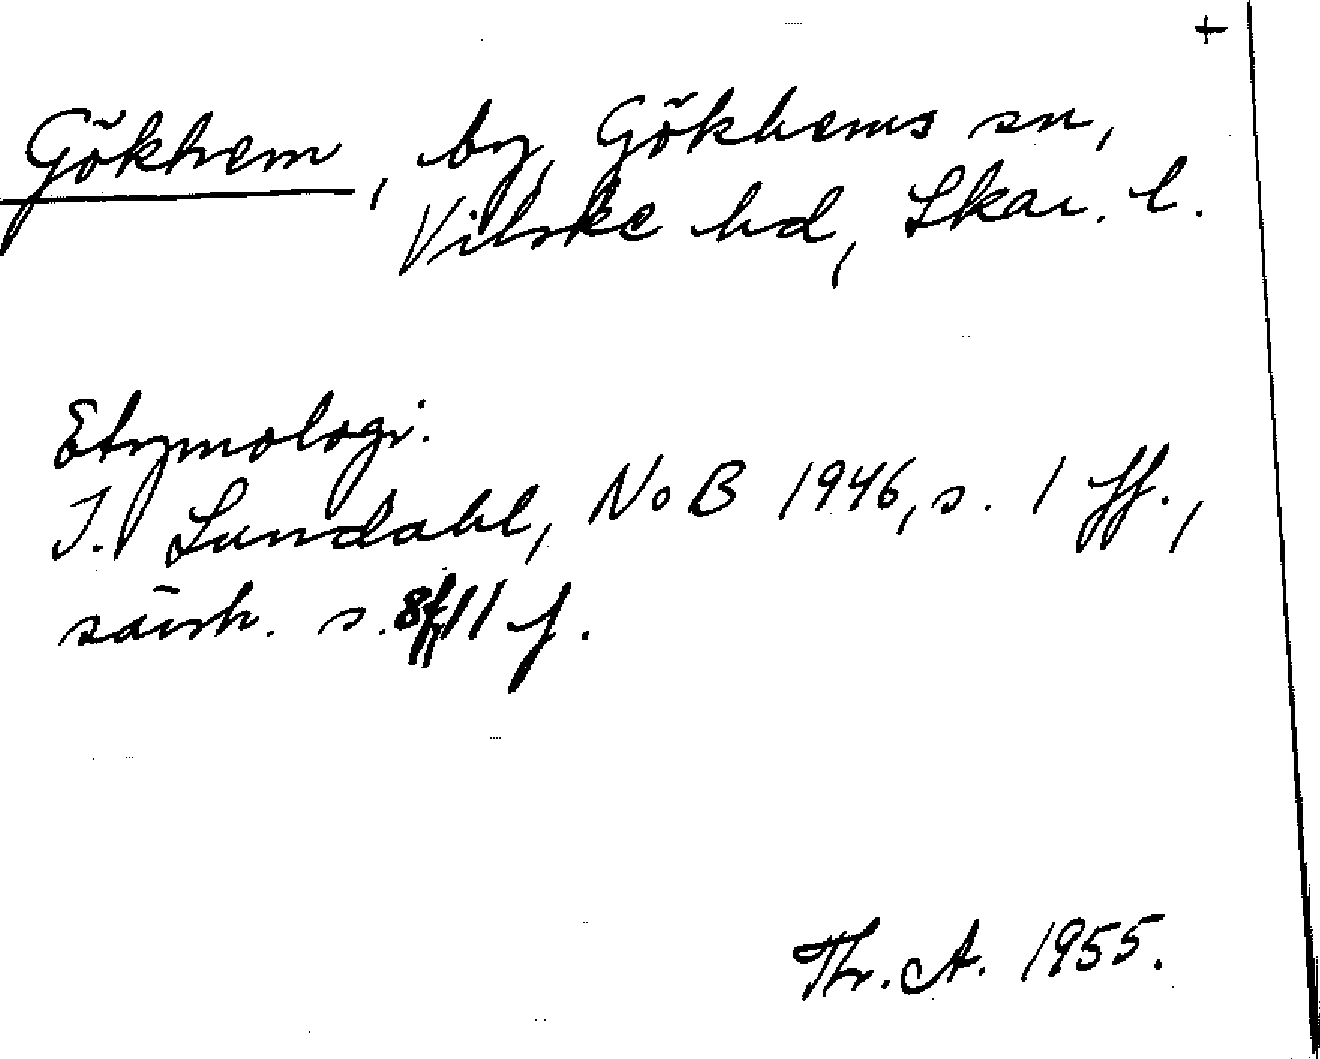 +
Gökhem, by, Gökhems sn,
Vilske hd, Skar. l.
Etymologi.
I. Lundahl, NoB 1946, s. 1 ff.,
särsk. s. 8f, 11 f.
Th. A. 1955.